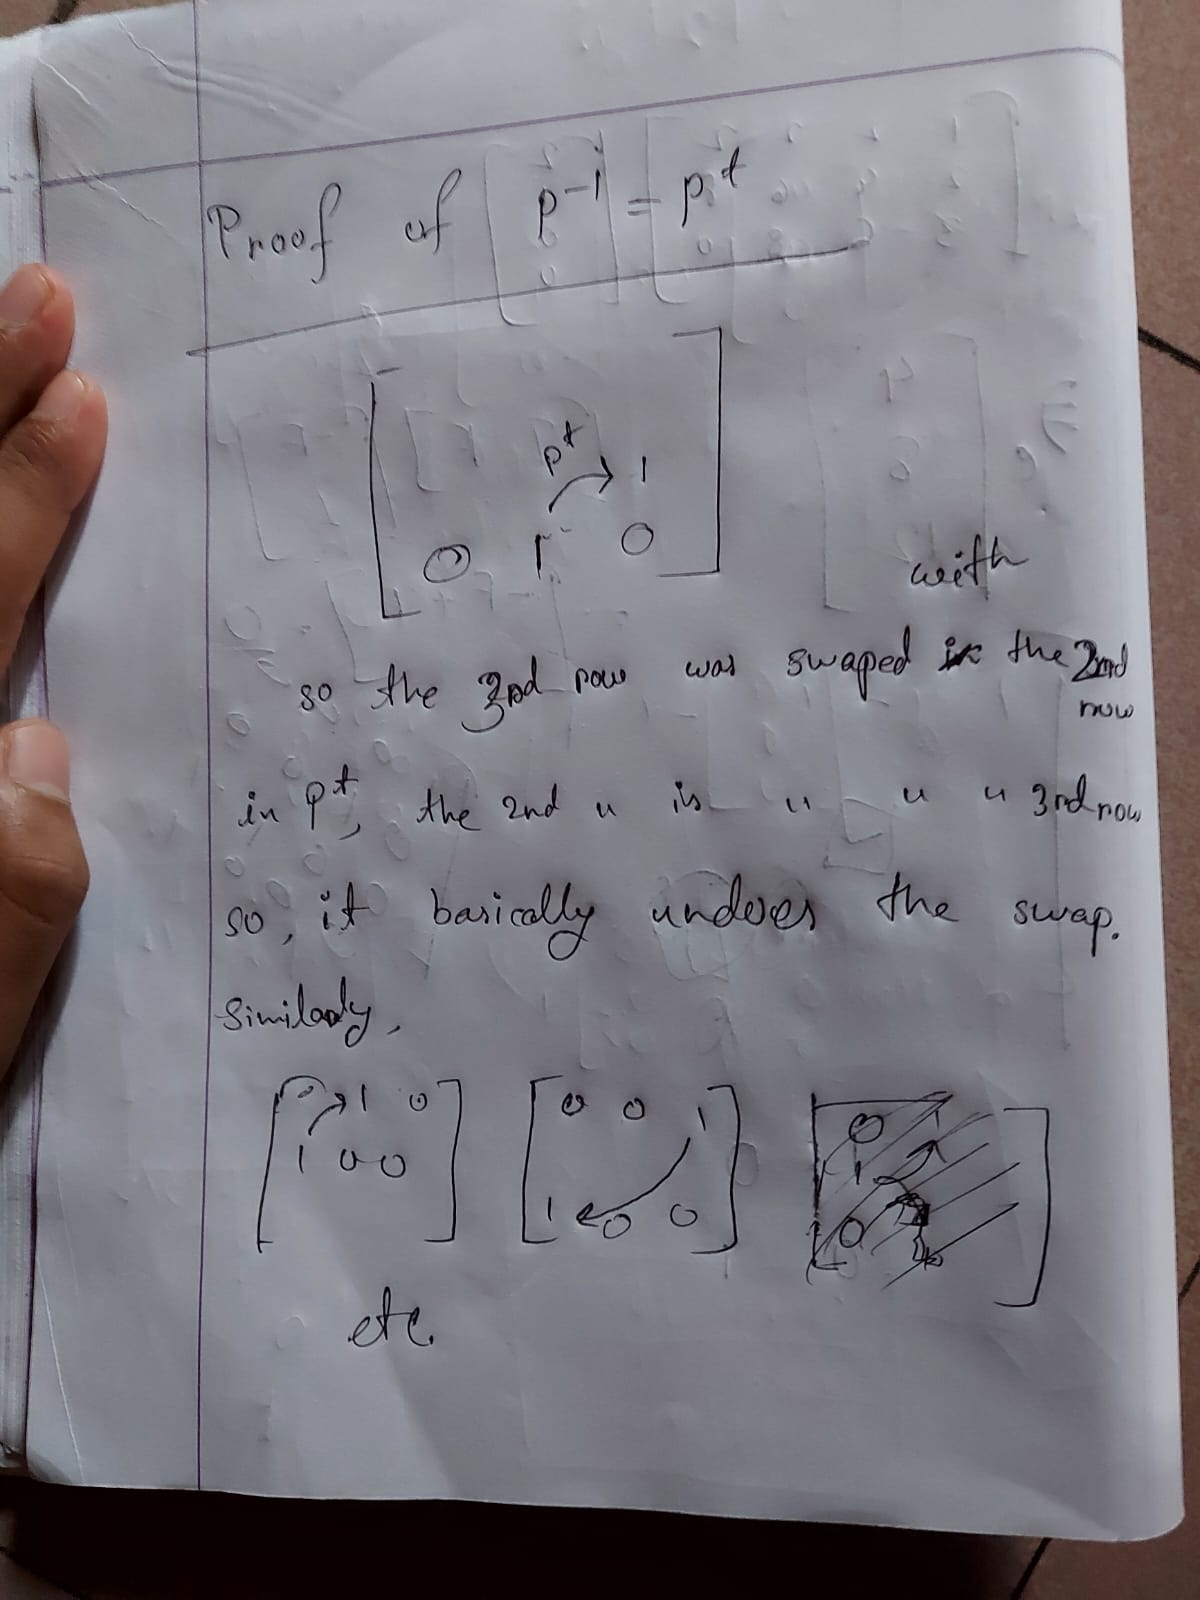 Proof of p⁻¹ = pᵗ
pᵗ
1
0 1 0
with
so the 3rd row was swaped the 2nd
row
in pᵗ, the 2nd " is " " " 3rd row
so, it basically undoes the swap.
Similarly,
0 1 0   0 0 1
1 0 0   1 0 0
etc.